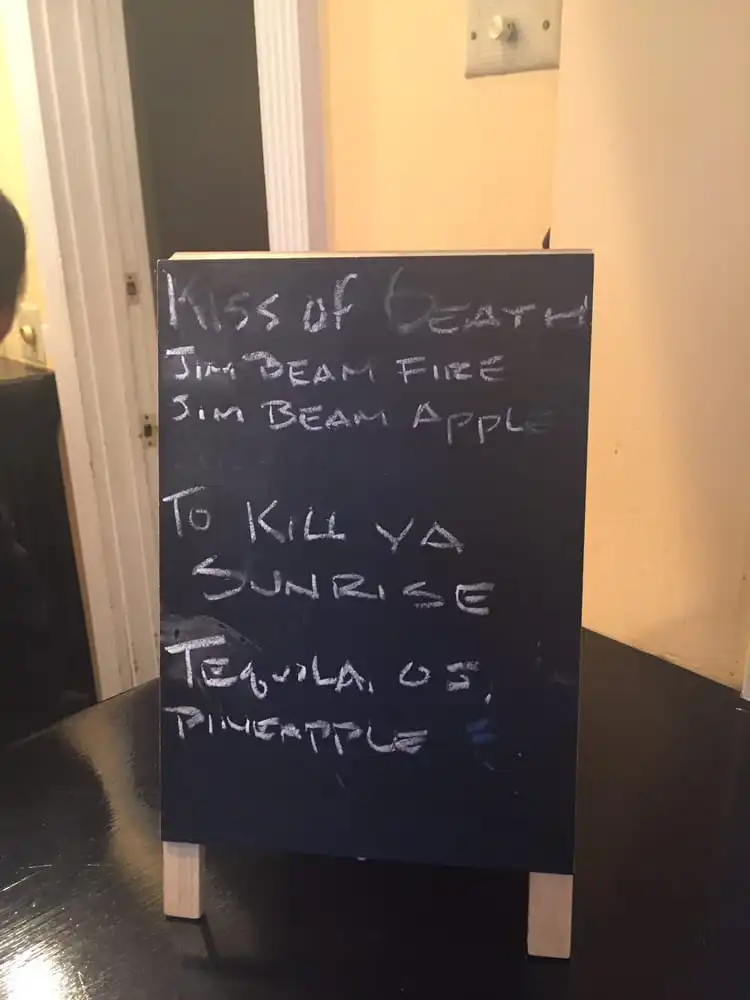 Kiss of DEATH
JIM BEAM FIRE
JIM BEAM APPLE
To KILL YA
SUNRISE
TEQUILA, OJ,
PINEAPPLE